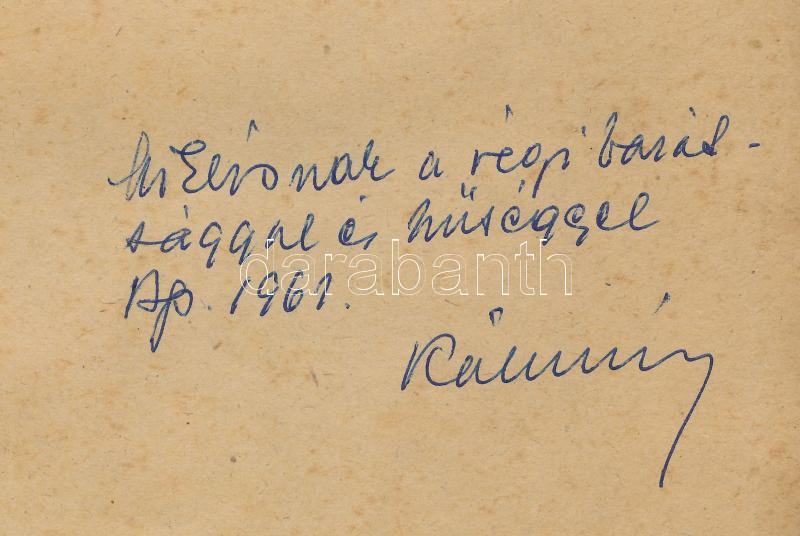 a régi barát-
sággal és hűséggel
Ap. 1961.
Kálmán
darabanth